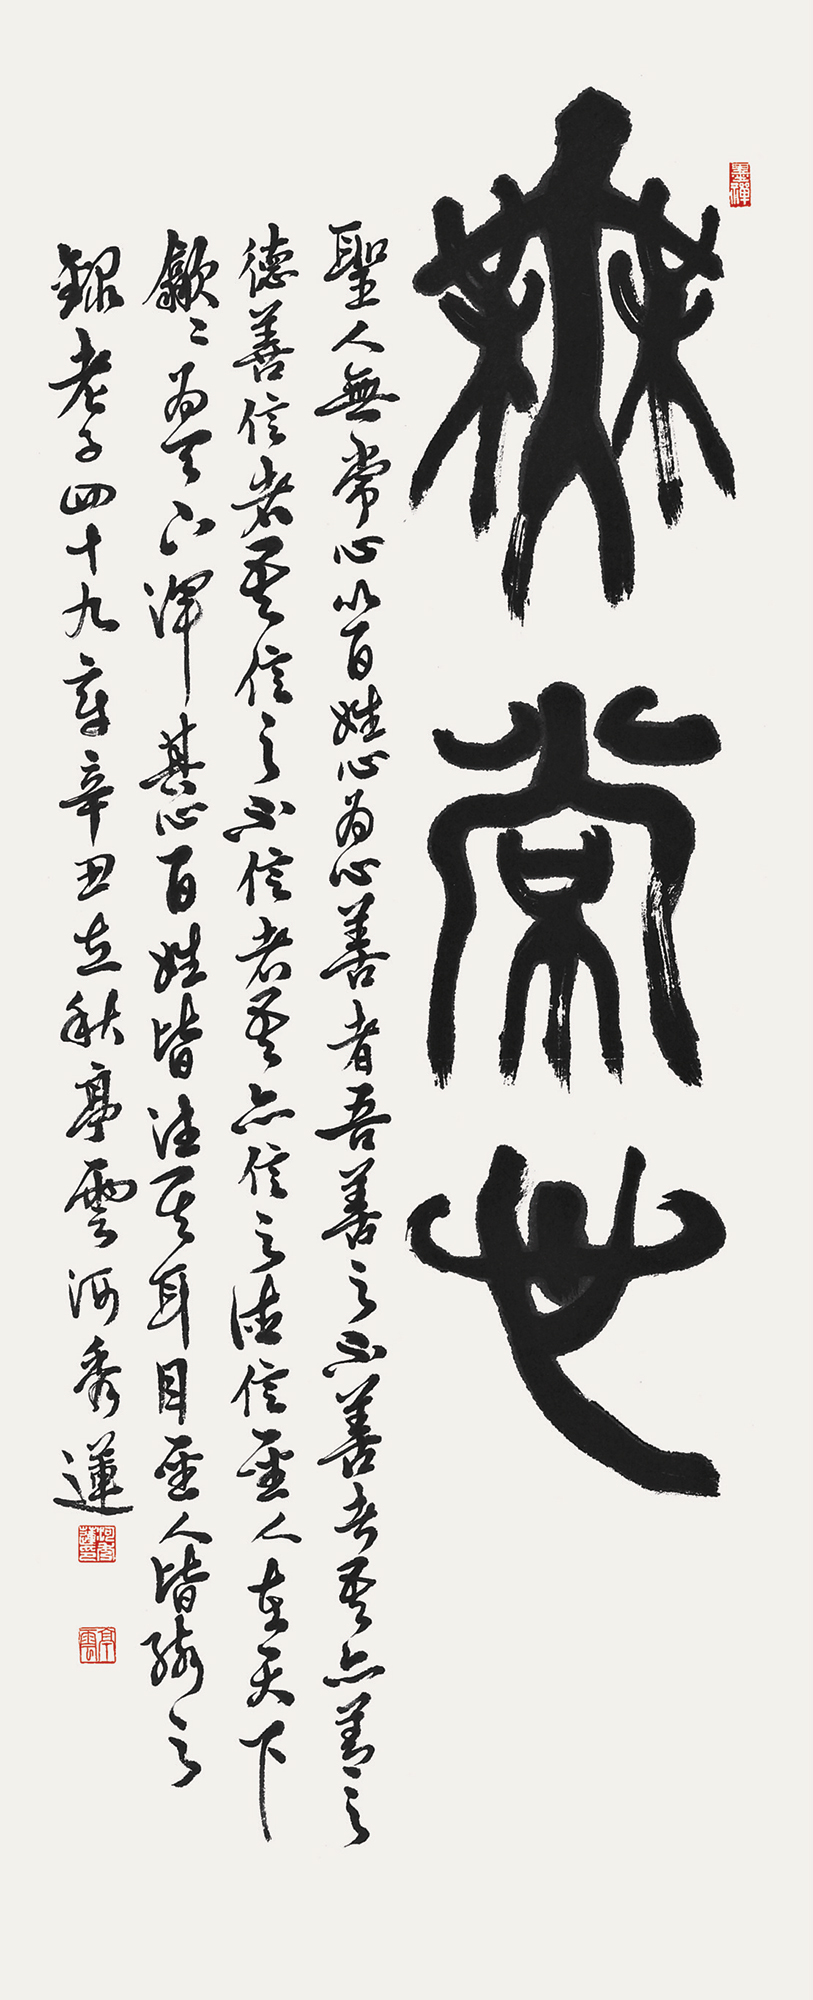 墨禪
無常心
聖人無常心以百姓心為心善者吾善之不善者吾亦善之
德善信者吾信之不信者吾亦信之德信聖人在天下
歙〻為天下渾其心百姓皆注其耳目聖人皆孩之
錄老子四十九章辛丑立秋亭雲河秀蓮
河秀蓮印
亭雲